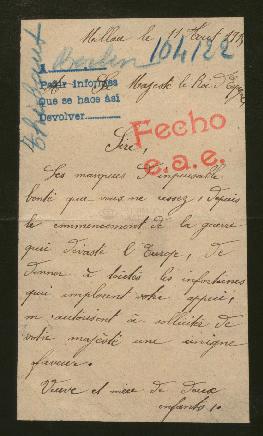 Millau le 11 Août
104122
A Berlin
Pedir informes
Que se haga así
Devolver
Sa Majesté le Roi d'Espagne
Fecho
e.a.e.
Sire,
Les marques d'inépuisable
bonté que vous ne cessez, depuis
le commencement de la guerre
qui dévaste l'Europe, de
donner à toutes les infortunes
qui implorent votre appui,
m'autorisent à solliciter de
votre majesté une insigne
faveur.
Veuve et mère de deux
enfants,